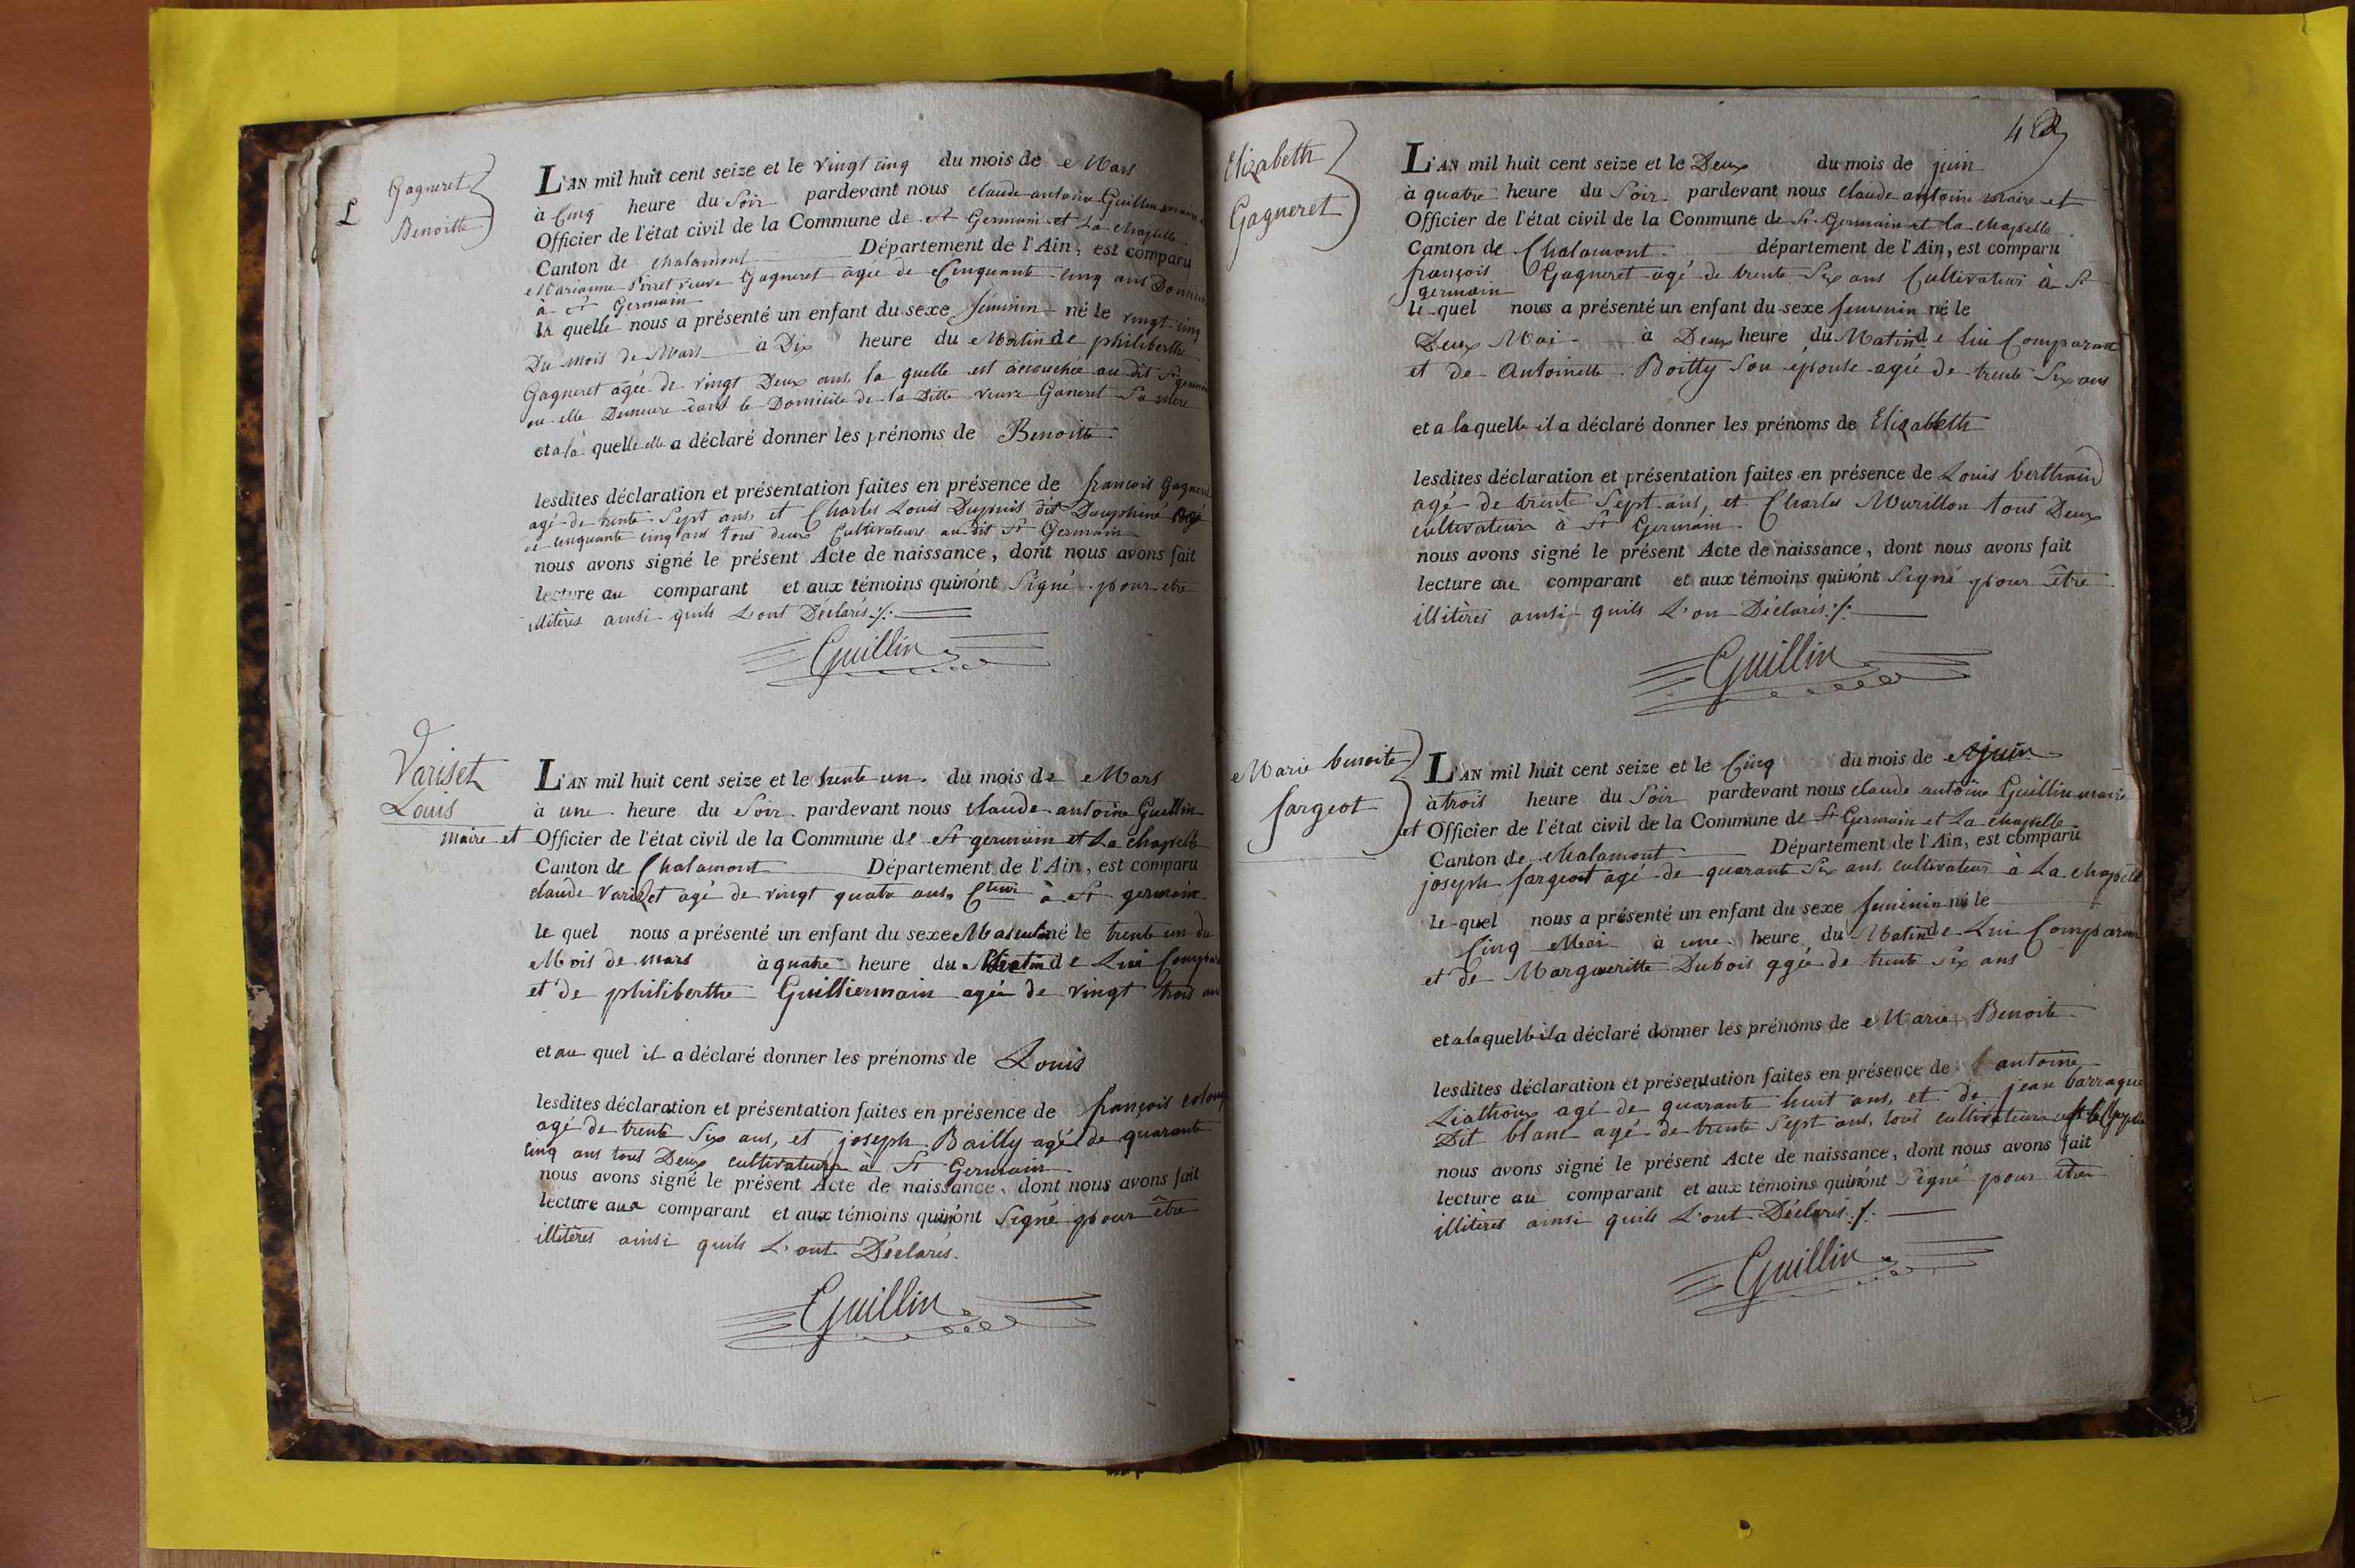 L
Gagneret
Benoitte
L'AN mil huit cent seize et le vingt cinq du mois de Mars
à Cinq heure du Soir pardevant nous claude antoine Guillin maire
Officier de l'état civil de la Commune de St Germain et La chapelle
Canton de chalamont Département de l'Ain, est comparu
Marianne Pirret veuve Gagneret agée de Cinquante cinq ans
à St Germain
la quelle nous a présenté un enfant du sexe féminin né le vingt cinq
Du mois de Mars à Dix heure du Matin de philiberthe
Gagneret agée de vingt Deux ans, la quelle est accouchée au dit St germain
ou elle Demeure dans le Domicile de la Ditte veuve Ganeret Sa mere
et a la quelle elle a déclaré donner les prénoms de Benoitte
lesdites déclaration et présentation faites en présence de francois Gagneret
agé de trente Sept ans, et Charles Louis Dupuis dit Dauphiné agé
de cinquante cinq ans tous deux Cultivateurs au dit St Germain
nous avons signé le présent Acte de naissance, dont nous avons fait
lecture au comparant et aux témoins qui n'ont Signé pour etre
illitèrés ainsi quils L'ont Déclarés ./.
Guillin
Variset
Louis
L'AN mil huit cent seize et le trente un du mois de Mars
à une heure du Soir pardevant nous claude antoine Guillin
maire et Officier de l'état civil de la Commune de St germain et La chapelle
Canton de Chalamont Département de l'Ain, est comparu
claude Variset agé de vingt quatre ans, Cteur à St germain
le quel nous a présenté un enfant du sexe Masculin né le trente un du
Mois de mars à quatre heure du Matin de Lui Compart
et de philiberthe Guilliermain agée de vingt trois ans
et au quel il a déclaré donner les prénoms de Louis
lesdites déclaration et présentation faites en présence de françois
agé de trente Six ans, et joseph Bailly agé de quarante
cinq ans tous Deux cultivateurs à St Germain
nous avons signé le présent Acte de naissance, dont nous avons fait
lecture aux comparant et aux témoins qui n'ont Signé pour être
illitèrés ainsi quils L'ont Déclarés.
Guillin
Elizabeth
Gagneret
L'AN mil huit cent seize et le Deux du mois de juin
à quatre heure du Soir pardevant nous claude antoine maire et
Officier de l'état civil de la Commune de St Germain et la chapelle
Canton de Chalamont département de l'Ain, est comparu
françois Gagneret agé de trente Six ans Cultivateur à St
germain
le quel nous a présenté un enfant du sexe femenin né le
Deux Mai à Deux heure du Matin de Lui Comparant
et de Antoinette Boitty Son épouse agée de trente Six ans
et a la quelle il a déclaré donner les prénoms de Elizabeth
lesdites déclaration et présentation faites en présence de Louis berttrand
agé de trente Sept ans, et Charles Murillon tous Deux
cultivateurs à St Germain
nous avons signé le présent Acte de naissance, dont nous avons fait
lecture au comparant et aux témoins qui n'ont Signé pour être
illitèrés ainsi quils L'on Déclarés ./.
Guillin
Marie benoite
fargeot
L'AN mil huit cent seize et le Cinq du mois de juin
à trois heure du Soir pardevant nous claude antoine Guillin maire
et Officier de l'état civil de la Commune de St Germain et La chapelle
Canton de chalamont Département de l'Ain, est comparu
joseph fargeot agé de quarante Six ans, cultivateur à La chapelle
le quel nous a présenté un enfant du sexe femenin né le
Cinq Mai à une heure du Matin de Lui Comparant
et de Margueritte Dubois agée de trente Six ans
et a la quelle il a déclaré donner les prénoms de Marie Benoite
lesdites déclaration et présentation faites en présence de antoine
Liathoux agé de quarante huit ans, et de jean barraque
Dit blanc agé de trente Sept ans, tous cultivateurs
nous avons signé le présent Acte de naissance, dont nous avons fait
lecture au comparant et aux témoins qui n'ont Signé pour être
illitèrés ainsi quils L'ont Déclarés ./.
Guillin